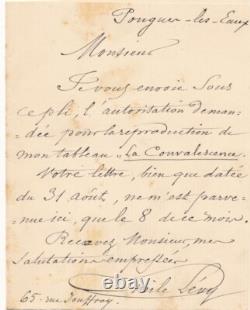 Pougues-les-Eaux
Monsieur
Je vous envoie sous
ce pli, l'autorisation deman-
dée pour la reproduction de
mon tableau "La Convalescence.
Votre lettre, bien que datée
du 31 août, ne m'est parve-
nue ici, que le 8 de ce mois.
Recevez Monsieur, mes
salutations empressées
Emile Lévy
65 - rue Jouffroy.
© 123RF.com